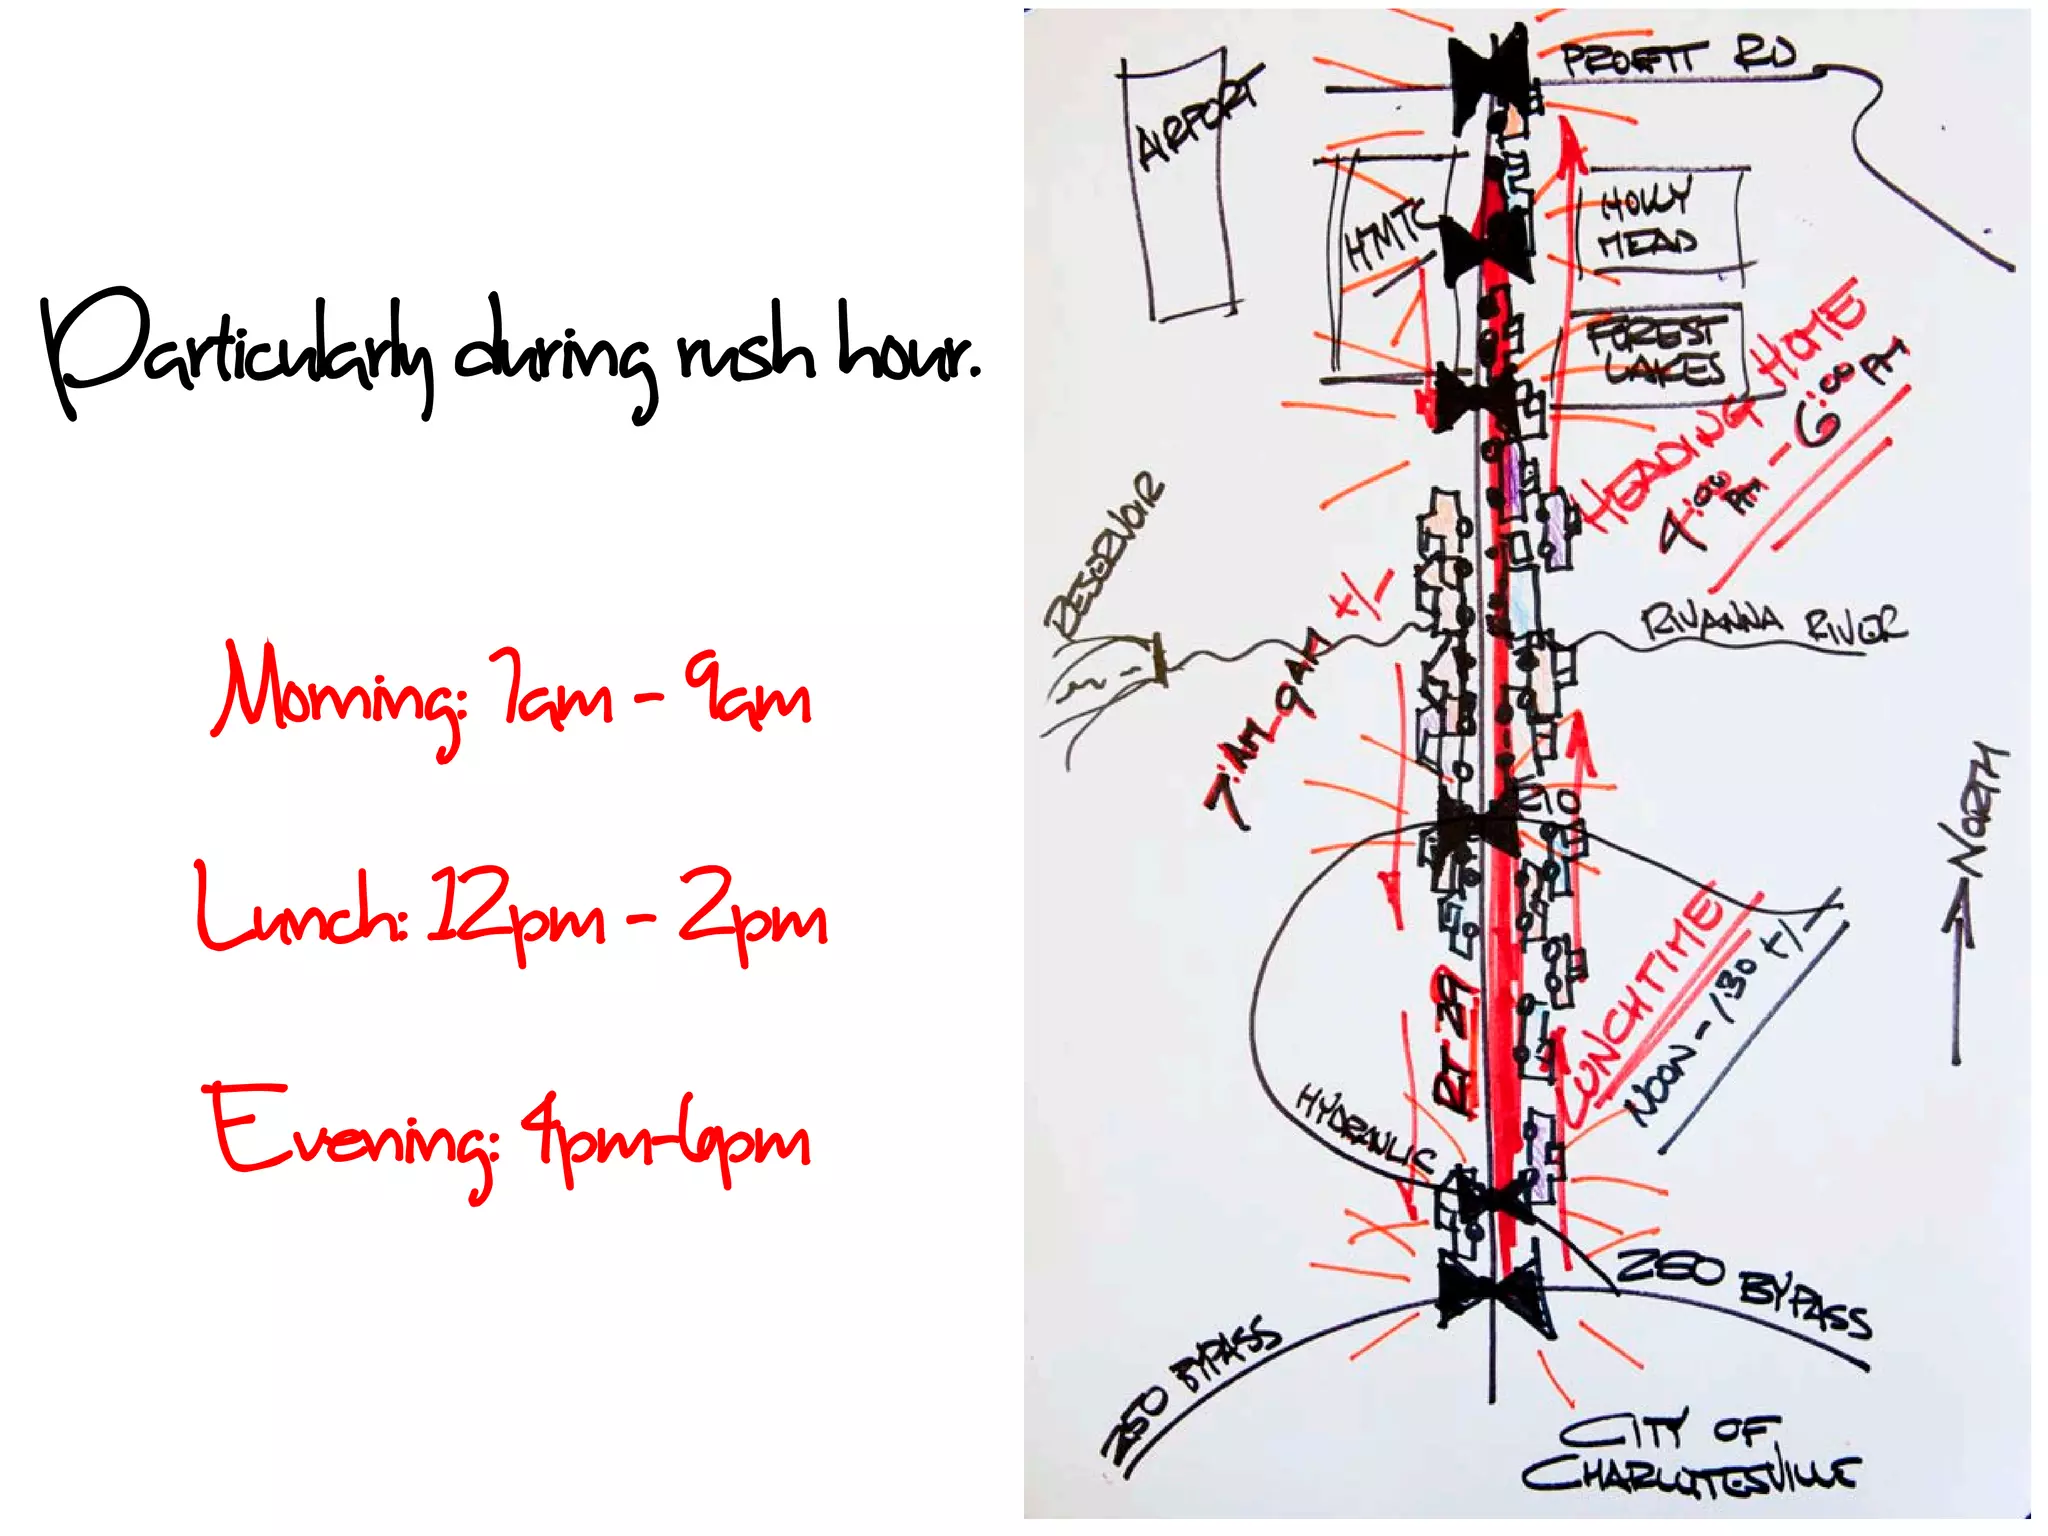 Particularly during rush hour.
Morning: 7am - 9am
Lunch: 12pm - 2pm
Evening: 4pm-6pm
PROFIT RD
AIRPORT
HOLLY
MEAD
HMTC
FOREST
LAKES
HEADING HOME
4:00 PM - 6:00 PM
RESERVOIR
+/-
7:AM - 9AM
RIVANNA RIVER
NORTH
RIO
LUNCHTIME
NOON - 130 +/-
RT 29
HYDRAULIC
250 BYPASS
250 BYPASS
CITY OF
CHARLOTTESVILLE